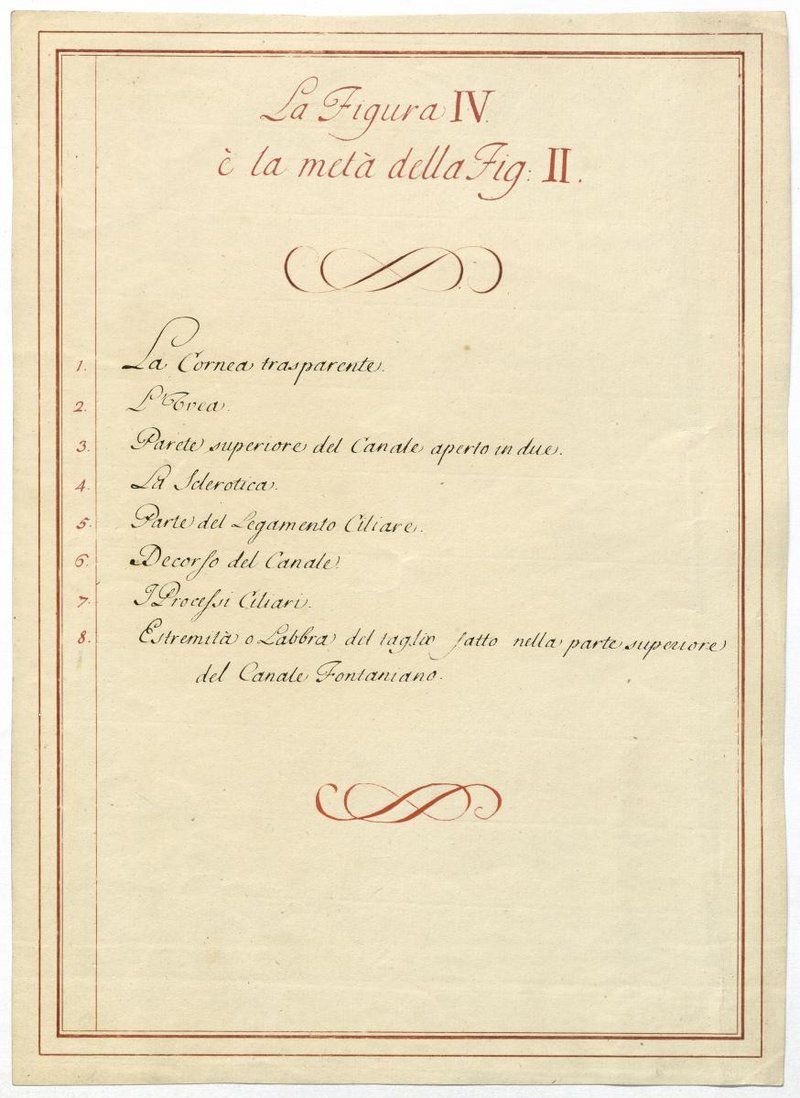 La Figura IV.
è la metà della Fig: II.
1. La Cornea trasparente.
2. L'Uvea.
3. Parete superiore del Canale aperto in due.
4. La Sclerotica.
5. Parte del Legamento Ciliare.
6. Decorſo del Canale.
7. I Proceſsi Ciliari.
8. Estremità o Labbra del taglio fatto nella parte superiore
del Canale Fontaniano.